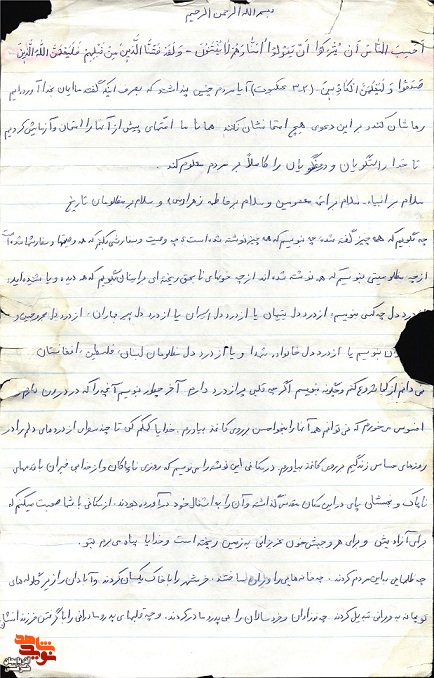 بسم الله الرحمن الرحیم
احسب الناس ان یترکوا ان یقولوا امنا و هم لا یفتنون - ولقد فتنا الذین من قبلهم فلیعلمن الله الذین
صدقوا و لیعلمن الکاذبین (۳،۲ عنکبوت) آیا مردم چنین پنداشتند که بصرف اینکه گفتند ما ایمان بخدا آورده‌ایم
رهاشان کنند و بر این دعوی هیچ امتحانشان نکنند ما امتهای پیش از آنها را امتحان و آزمایش کردیم
تا خدا راستگویان و دروغگویان را کاملاً بر مردم معلوم کند.
سلام بر انبیاء سلام بر ائمه معصومین و سلام بر فاطمه زهرا (س) و سلام بر مظلومان تاریخ
چه بگویم که همه چیز گفته شده، چه بنویسم که همه چیز نوشته شده است، چه وصیت و سفارشی بکنم که همه وصیتها و سفارشها شده است
از چه مظلومیتی بنویسم که همه نوشته شده‌اند از چه خونهای ناحق ریخته‌ای برایتان بگویم که همه دیده و یا شنیده‌اید،
از درد دل چه کسی بنویسم، از درد دل یتیمان یا از درد دل اسیران یا از درد دل همسران، از درد دل مجروحین و
بنویسم یا از درد دل خانواده شهدا و یا از درد دل مظلومان لبنان، فلسطین، افغانستان
نمی‌دانم از کجا شروع کنم و چگونه بنویسم اگر چه قلبی پر از درد دارم. آخر چطور بنویسم آنچه را که در درون دارم و
افسوس می‌خورم که نمی‌توانم همه آنها را بر روی کاغذ بیاورم. خدایا کمکم کن تا چند سطری از دردهای دلم را در
روزهای حساس زندگیم بر روی کاغذ بیاورم. در مکانی این نوشته را می‌نویسم که روزی ناپاکان و از خدا بی‌خبران با قدمهای
ناپاک و نجسشان پای در این مکان مقدس گذاشته و آن را به اشغال خود درآورده بودند. از مکانی با شما صحبت میکنم که
برای آزادیش و برای هر وجبش خون عزیزانی به زمین ریخته است و خدایا پناه می‌برم بتو.
چه ظلمهایی به این مردم کردند. چه خانه‌هایی را ویران ساختند، خرمشهر را با خاک یکسان کردند و آبادان را زیر گلوله‌های
توپخانه به ویرانی تبدیل کردند. چه نوزادان و خردسالان را بی پدر و مادر کردند. و چه قلبهای پدر و مادرانی را با گرفتن فرزندانشان
نوید شاهد